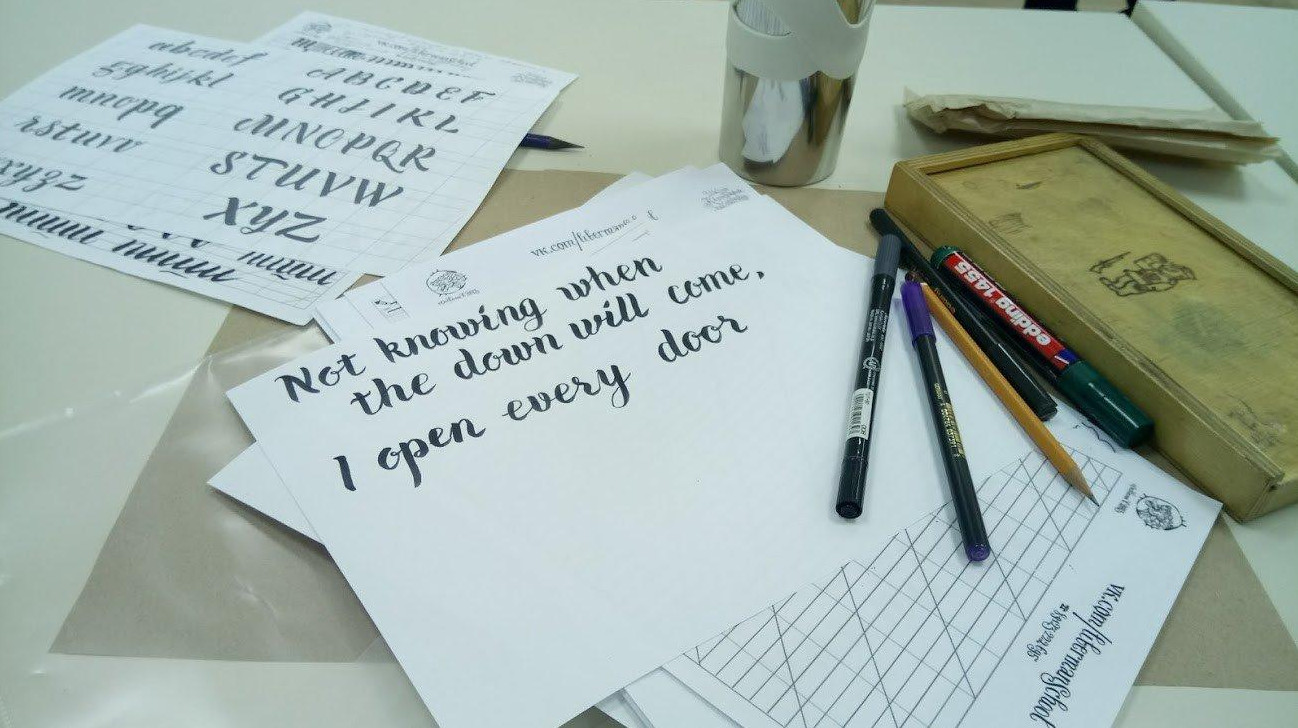 abcdef
ghijkl
mnopq
rstuvv
xyzz
ABCDEF
GHJIKL
MNOPQR
STUVW
XYZ
vk.com/
Not knowing when
the down will come,
I open every door
edding 1455
vk.com/libermanschool